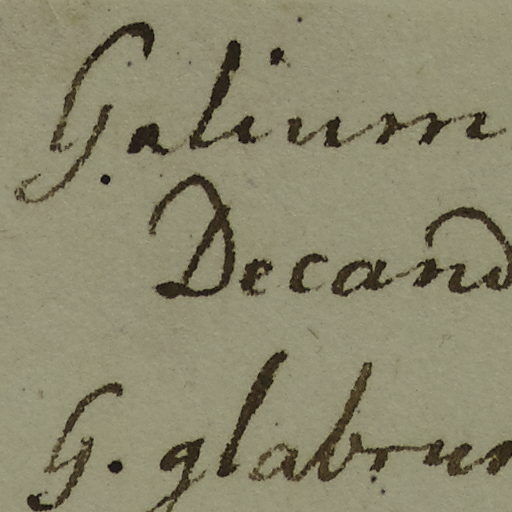 Galium
Decand
G. glabrum